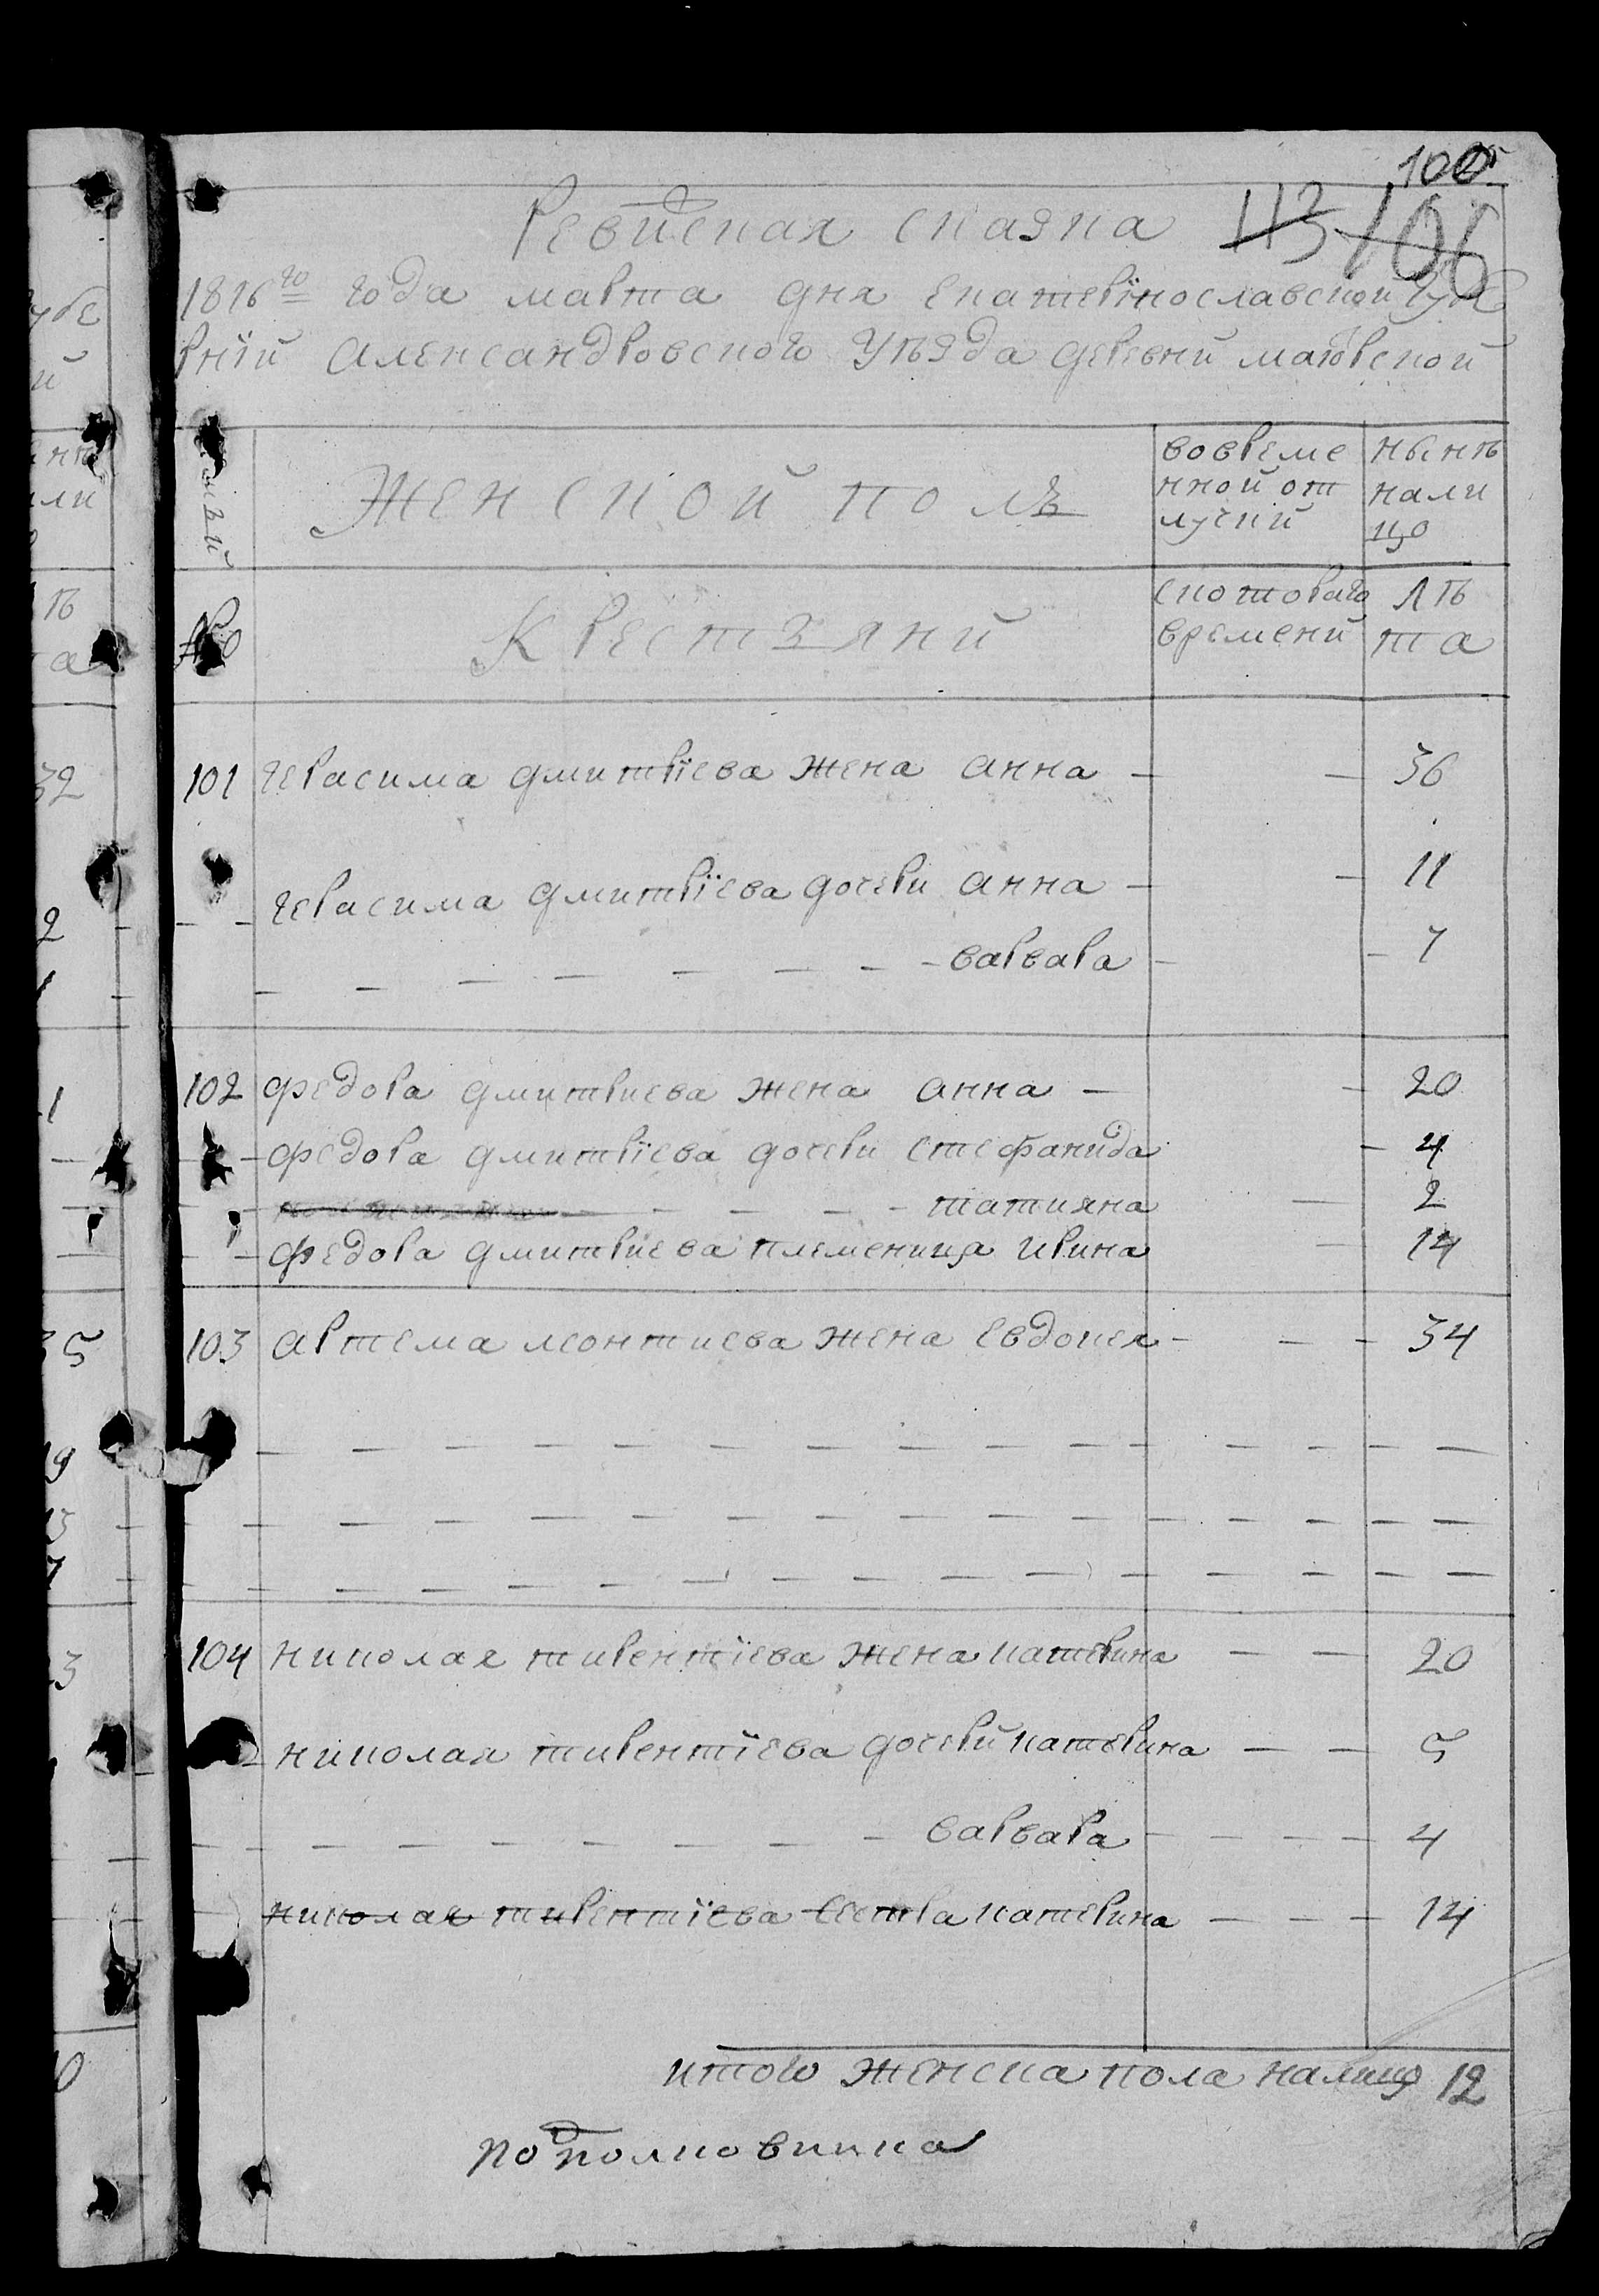 100
113 106
Ревиская сказка
1816го года марта дня Екатерїнославской Губе
рнїй Александровского Уѣзда деревнй маıорской
Женской полъ
вовреме
нной от
лучкй
нынѣ
нали
цо
№
Крестъянй
скотораго
временй
лѣ
та
101 герасима дмитрїева жена анна — — 36
герасима дмитрїева дочери анна — — 11
— — — — — — — варвара — — 7
102 федора дмитриева жена анна — — 20
— федора дмитрїева дочери стефанида — 4
— — — — татияна — 2
— — федора дмитрїева племеница ирина — 14
103 артема леонтиева жена евдокея — — — 34
104 николая тирентїева жена катерина — — 20
николая тирентїева дочерй катерина — — 5
— — — — — — — — варвара — — — — 4
николая тирентїева сестра катерина — — — 14
итого женска пола налицо 12
подполковника